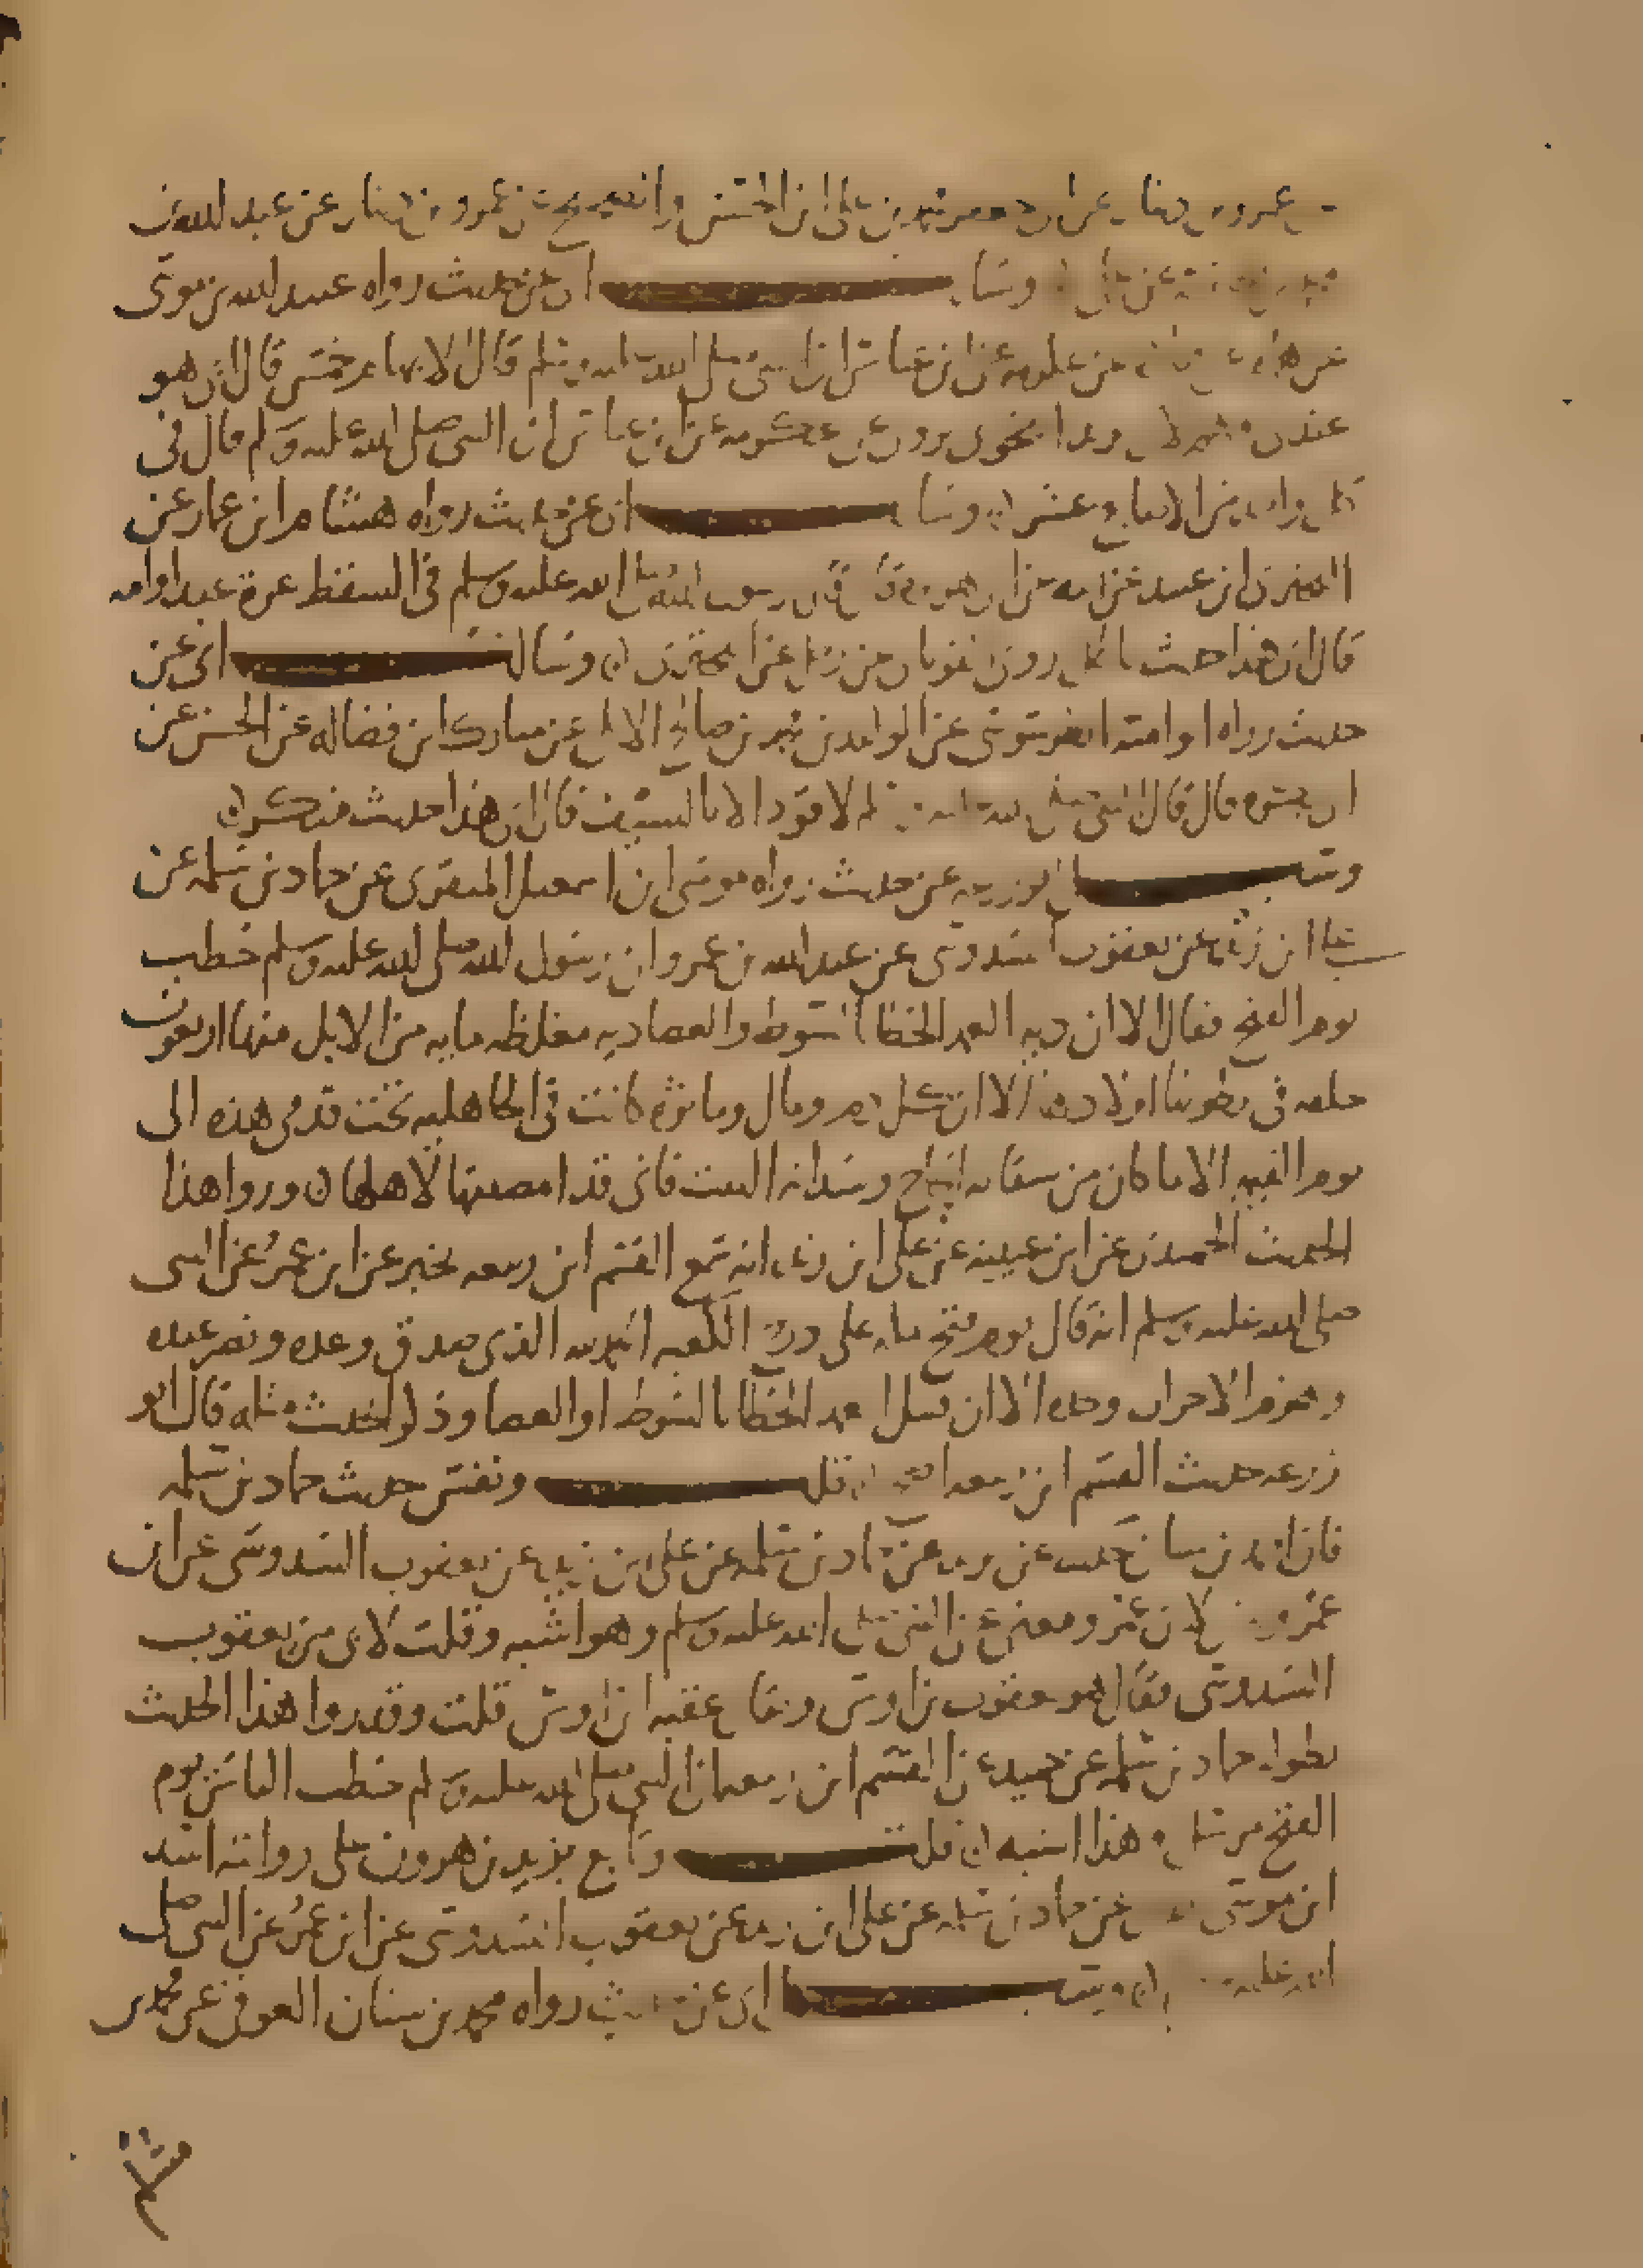 عمرو بن دينار عن ابي جعفر محمد بن علي ابن الحسن والصحيح عن عمرو بن دينار عن عبد الله بن
محمد عن علي ٥ وسا ابي عن حديث رواه عبيد الله بن موسى
عن عن عكرمه عن ابن عباس ان النبي صلى الله عليه وسلم قال الابهام خمس قال ابي هو
عندي عن عكرمه عن ابن عباس ان النبي صلى الله عليه وسلم قال في
كل واحد من الاصابع عشر ٥ وسا ابي عن حديث رواه هشام ابن عمار عن
ابن عبيد عن ابيه عن ابي هريره قال قال رسول الله صلى الله عليه وسلم في السقط غرة عبد او امه
قال ابي هذا حديث باطل عن ٥ وسال ابي عن
حديث رواه ابو اميه الطرسوسي عن الوليد بن محمد بن صالح الايلي عن مبارك ابن فضاله عن الحسن عن
ابي بكره قال قال النبي صلى الله عليه وسلم لا قود الا بالسيف قال ابي هذا حديث منكر ٥
وسـ ل ابو زرعه عن حديث رواه موسى ابن اسمعيل المنقري عن حماد بن سلمه عن
علي ابن زيد عن يعقوب السدوسي عن عبد الله بن عمرو ان رسول الله صلى الله عليه وسلم خطب
يوم الفتح فقال الا ان ديه العمد الخطا السوط والعصا ديه مغلظه مايه من الابل منها اربعون
خلفه في بطونها اولادها الا ان كل دم ومال وماثره كانت في الجاهليه تحت قدمي هذه الى
يوم القيمه الا ما كان من سقايه الحاج وسدانه البيت فاني قد امضيتها لاهلها ٥ وروا هذا
الحديث الحميدي عن ابن عيينه عن علي ابن زيد انه سمع القسم ابن ربيعه يخبر عن ابن عمر عن النبي
صلى الله عليه وسلم انه قال يوم فتح مكه على درج الكعبه الحمد لله الذي صدق وعده ونصر عبده
وهزم الاحزاب وحده الا ان قتيل العمد الخطا بالسوط او العصا وذكر الحديث مثله قال ابو
زرعه حديث القسم ابن ربيعه اصح ٥ قلـ ونفس حديث حماد بن سلمه
فان احمد بن سنان حدث عن يزيد عن حماد بن سلمه عن علي ابن زيد عن يعقوب السدوسي عن ابن
عمر عن النبي صلى الله عليه وسلم وهو اشبه وقلت لابي من يعقوب
السدوسي فقال هو يعقوب بن اوس ويقال عقبه ابن اوس قلت وقد روا هذا الحديث
بطوله حماد بن سلمه عن حميد عن القسم ابن ربيعه ان النبي صلى الله عليه وسلم خطب الناس يوم
الفتح مرسل وهذا اشبه ٥ قلـ وتابع يزيد بن هرون على روايته اسد
ابن موسى عن حماد بن سلمه عن علي ابن زيد عن يعقوب السدوسي عن ابن عمر عن النبي صلى
الله عليه وسـ ابي عن حديث رواه محمد بن سنان العوفي عن محمد بن